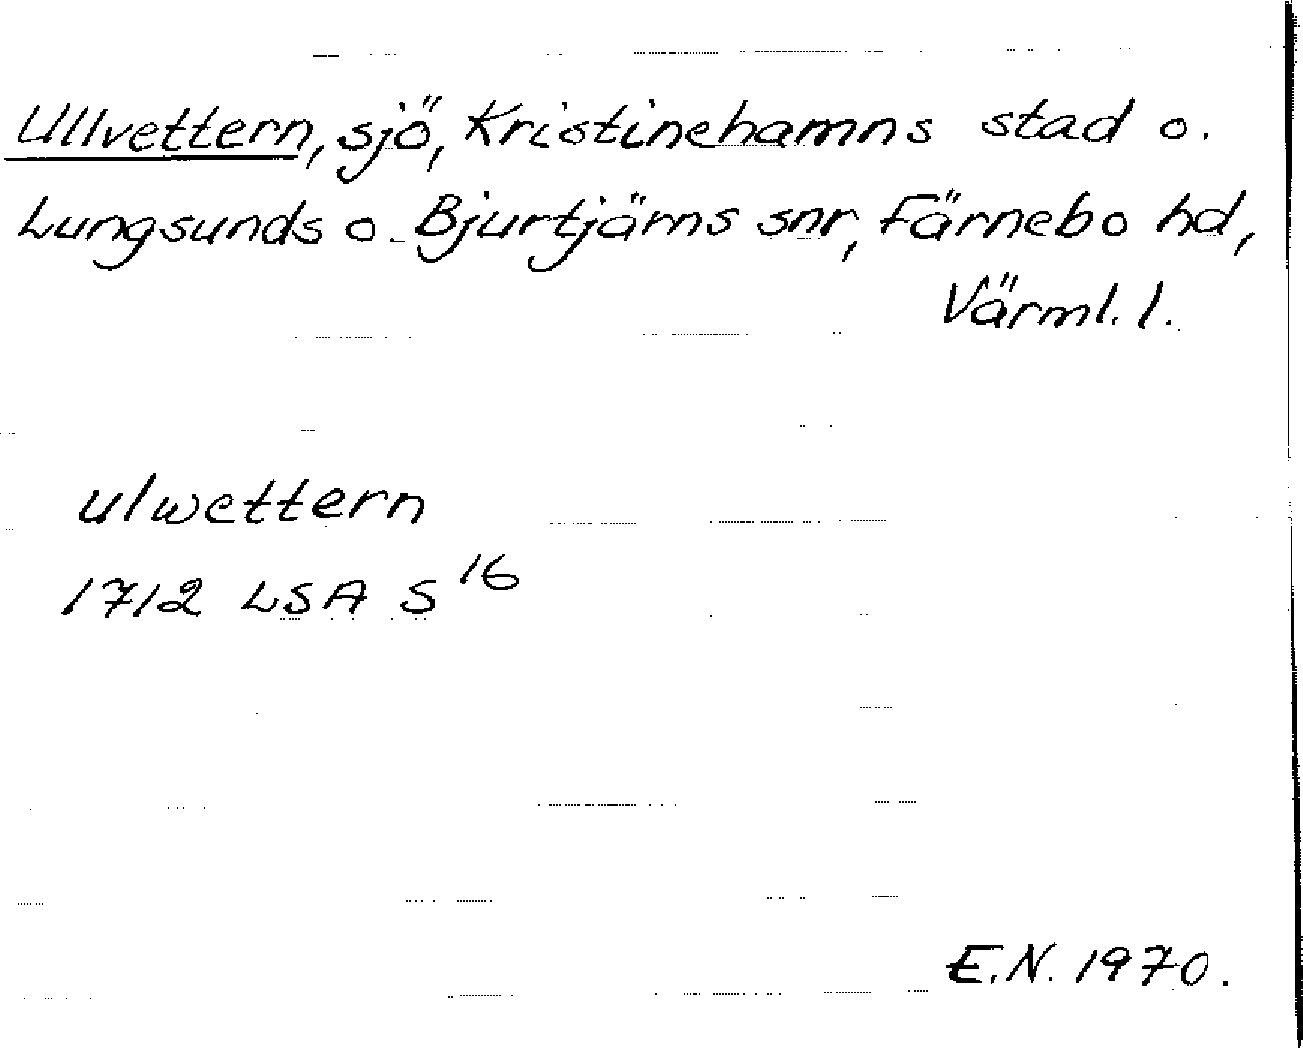 Ullvettern, sjö, Kristinehamns stad o.
Lungsunds o. Bjurtjärns snr, Färnebo hd,
Värml. l.
ulwettern
1712 LSA S 16
E.N. 1970.